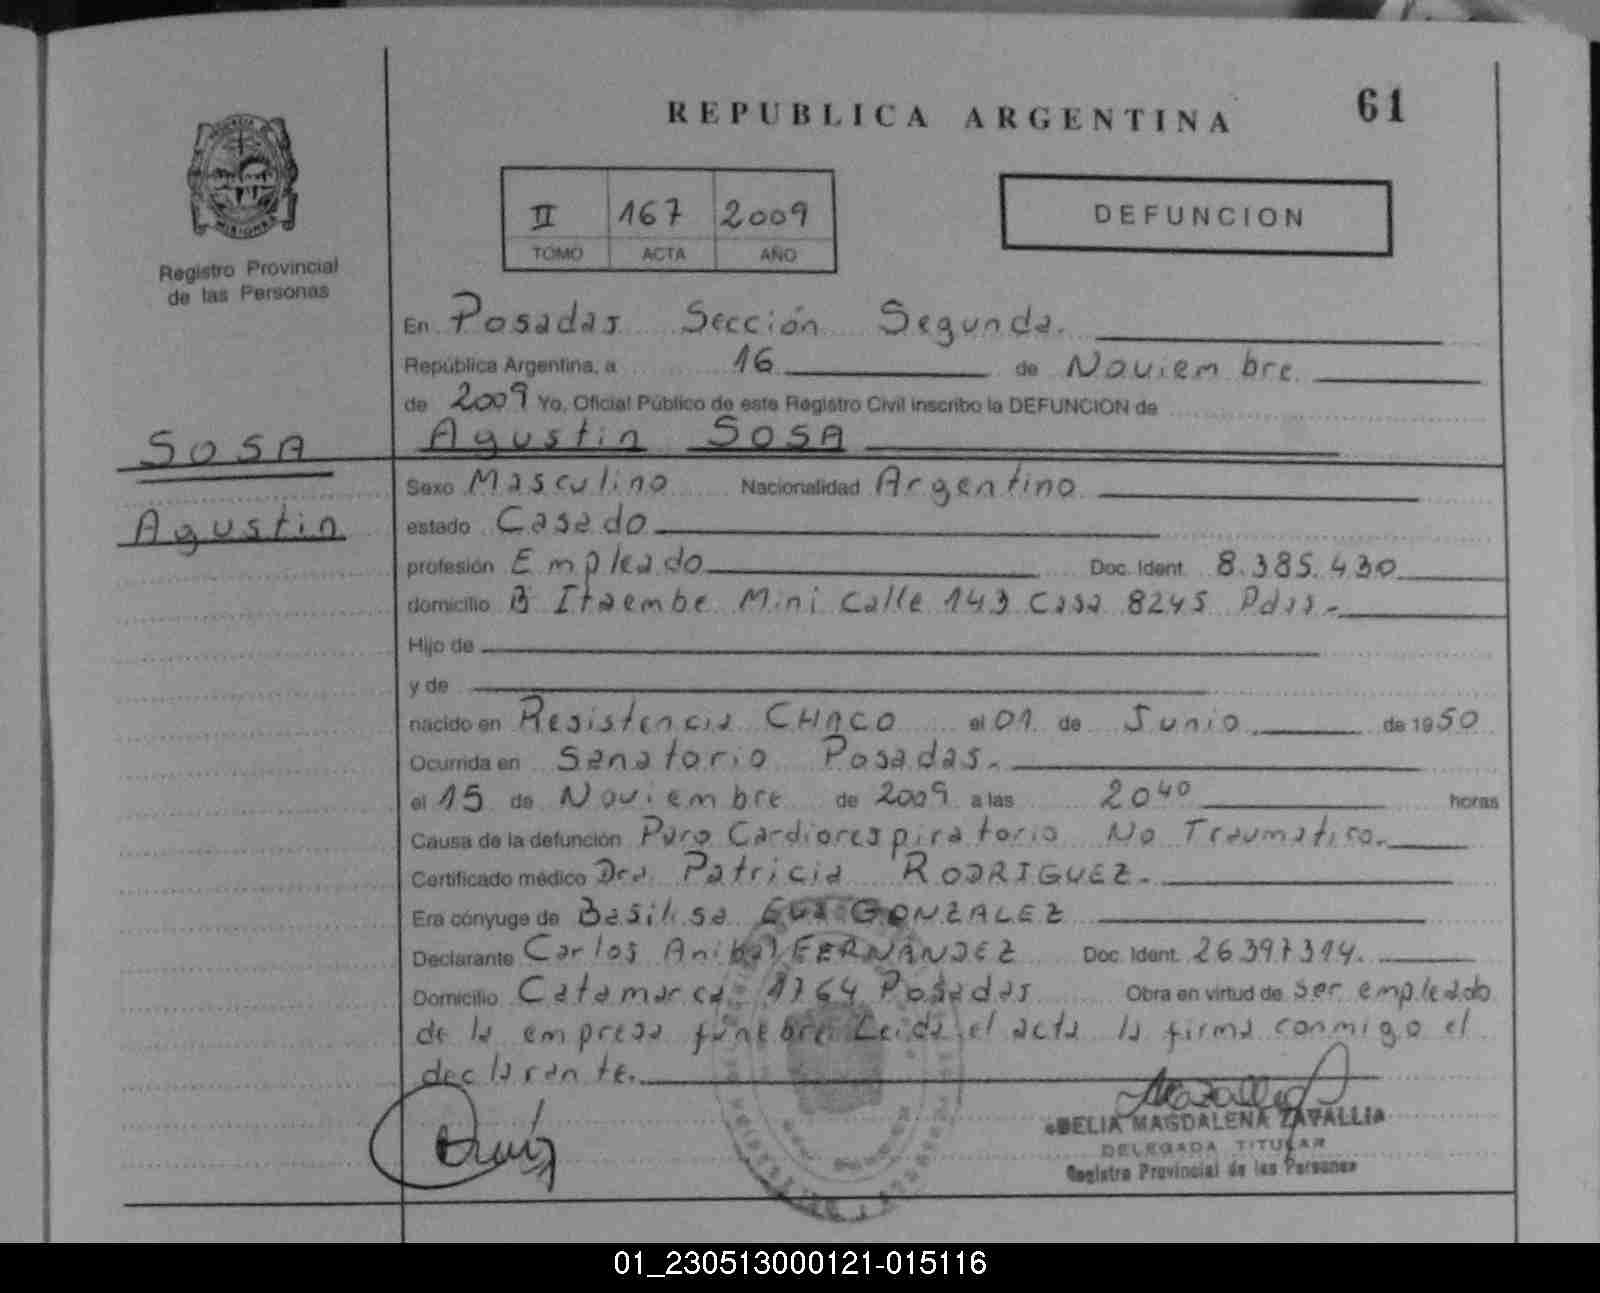 REPUBLICA ARGENTINA
61
MISIONES
Registro Provincial
de las Personas
II 167 2009
TOMO ACTA AÑO
DEFUNCION
En Posadas Sección Segunda.
República Argentina, a 16 de Noviembre
de 2009 Yo, Oficial Público de este Registro Civil inscribo la DEFUNCION de
SOSA
Agustin SOSA
Agustin
Sexo Masculino Nacionalidad Argentino
estado Casado
profesión Empleado Doc. Ident. 8.385.430
domicilio B Itaembe Mini Calle 143 Casa 8245 Pdas.-
Hijo de
y de
nacido en Resistencia CHACO el 01 de Junio de 1950
Ocurrida en Sanatorio Posadas.
el 15 de Noviembre de 2009 a las 20 40 horas
Causa de la defunción Paro Cardiorespiratorio No Traumatico.
Certificado médico Dra. Patricia RODRIGUEZ.
Era cónyuge de Basilisa EVA GONZALEZ
Declarante Carlos Anibal FERNANDEZ Doc. Ident. 26.397.314.
Domicilio Catamarca 1764 Posadas Obra en virtud de ser empleado
de la empresa fúnebre Leida el acta la firma conmigo el
declarante.
DELIA MAGDALENA ZAVALLIA
DELEGADA TITULAR
Registro Provincial de las Personas
01_230513000121-015116